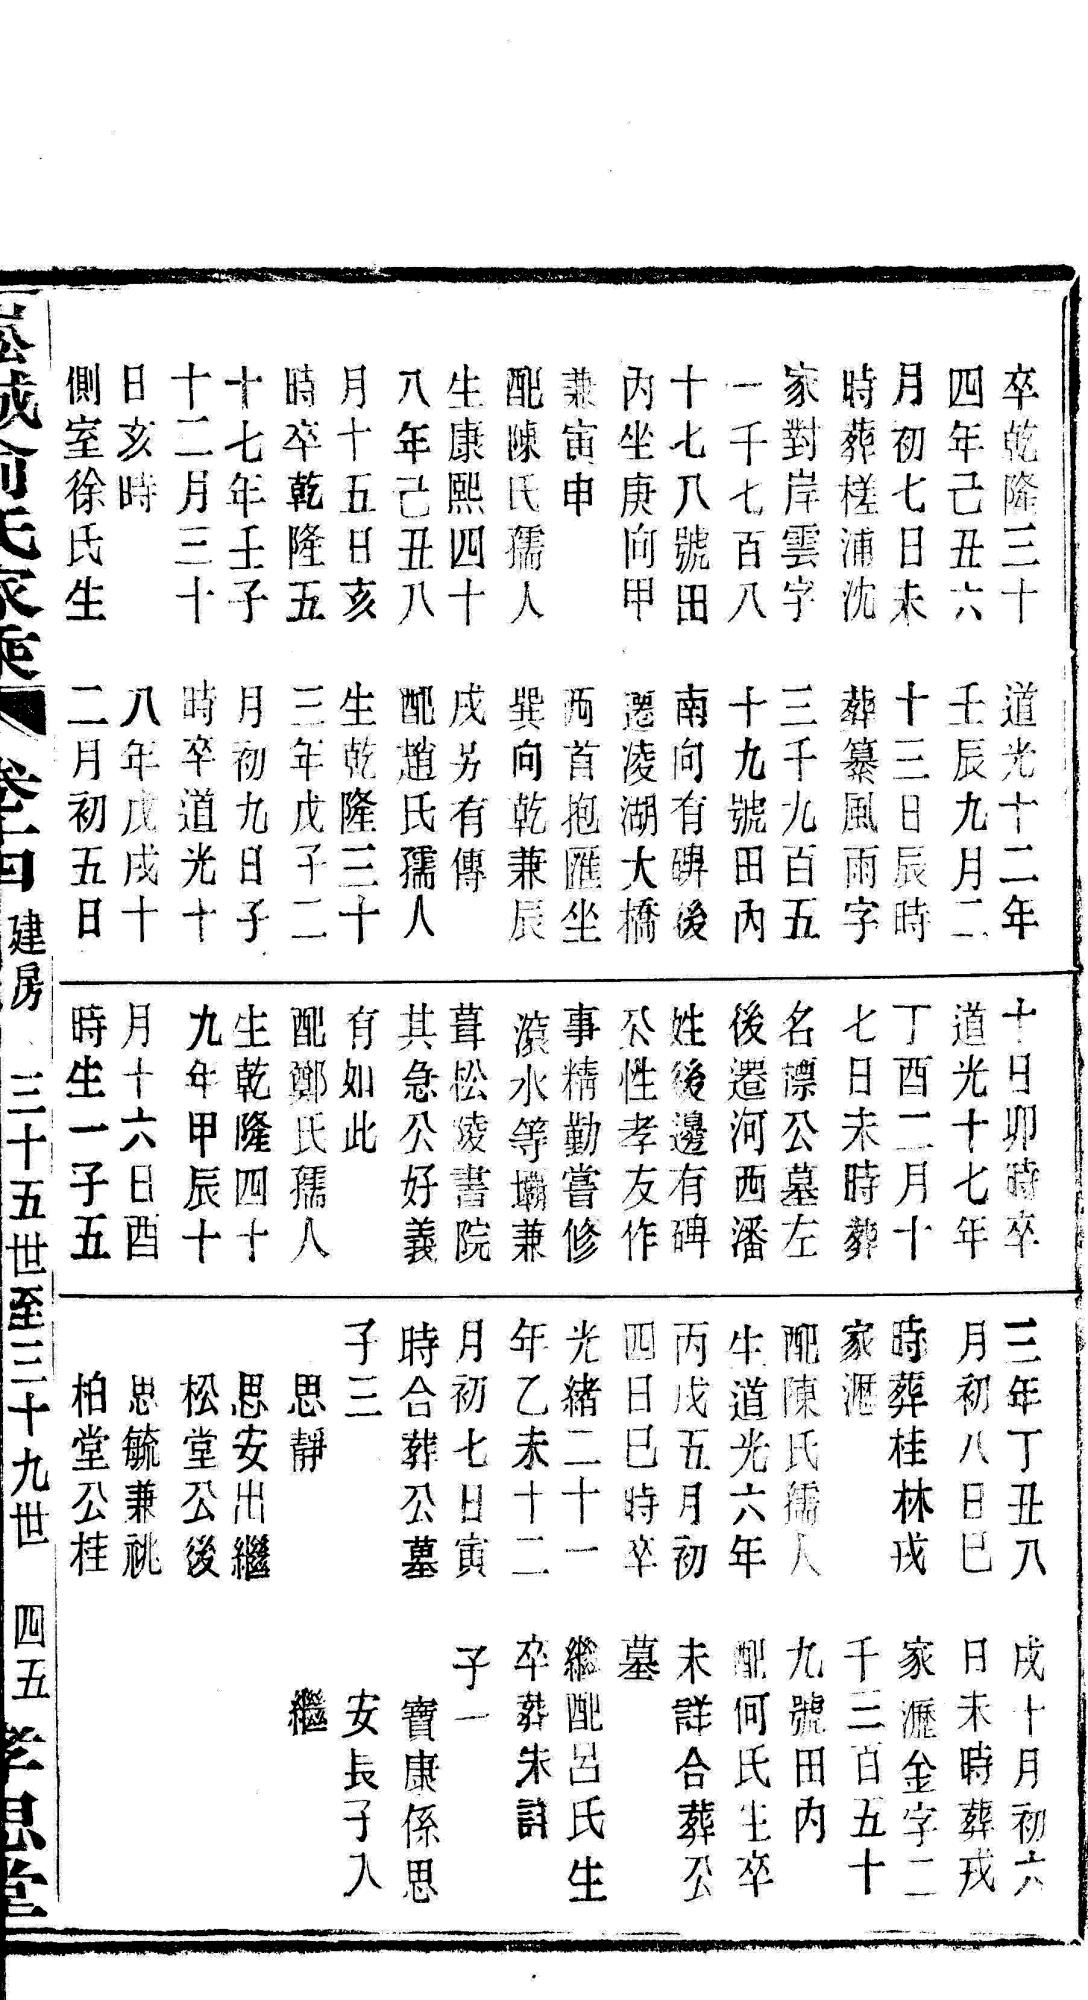 卒乾隆三十
四年己丑六
月初七日未
時葬槎浦沈
家對岸雲字
一千七百八
十七八號田
丙坐庚向甲
兼寅申
配陳氏孺人
生康熙四十
八年己丑八
月十五日亥
時卒乾隆五
十七年壬子
十二月三十
日亥時
側室徐氏生
道光十二年
壬辰九月二
十三日辰時
葬纂風雨字
三千九百五
十九號田內
南向有碑後
遷凌湖大橋
西首抱匯坐
巽向乾兼辰
戌另有傳
配趙氏孺人
生乾隆三十
三年戊子二
月初九日子
時卒道光十
八年戊戌十
二月初五日
十日卯時卒
道光十七年
丁酉二月十
七日未時葬
名標公墓左
後遷河西潘
姓後邊有碑
公性孝友作
事精勤嘗修
滾水等壩兼
葺松陵書院
其急公好義
有如此
配鄭氏孺人
生乾隆四十
九年甲辰十
月十六日酉
時生一子五
三年丁丑八
月初八日巳
時葬桂林戎
家瀝
配陳氏孺人
生道光六年
丙戌五月初
四日巳時卒
光緒二十一
年乙未十二
月初七日寅
時合葬公墓
子三
思靜
思安出繼
松堂公後
思毓兼祧
柏堂公桂
戌十月初六
日未時葬戎
家瀝金字二
千三百五十
九號田內
配何氏生卒
未詳合葬公
墓
繼配呂氏生
卒葬未詳
子一
寶康係思
安長子入
繼
崧城俞氏家乘 卷十四 建房 三十五世至三十九世 四五 孝思堂